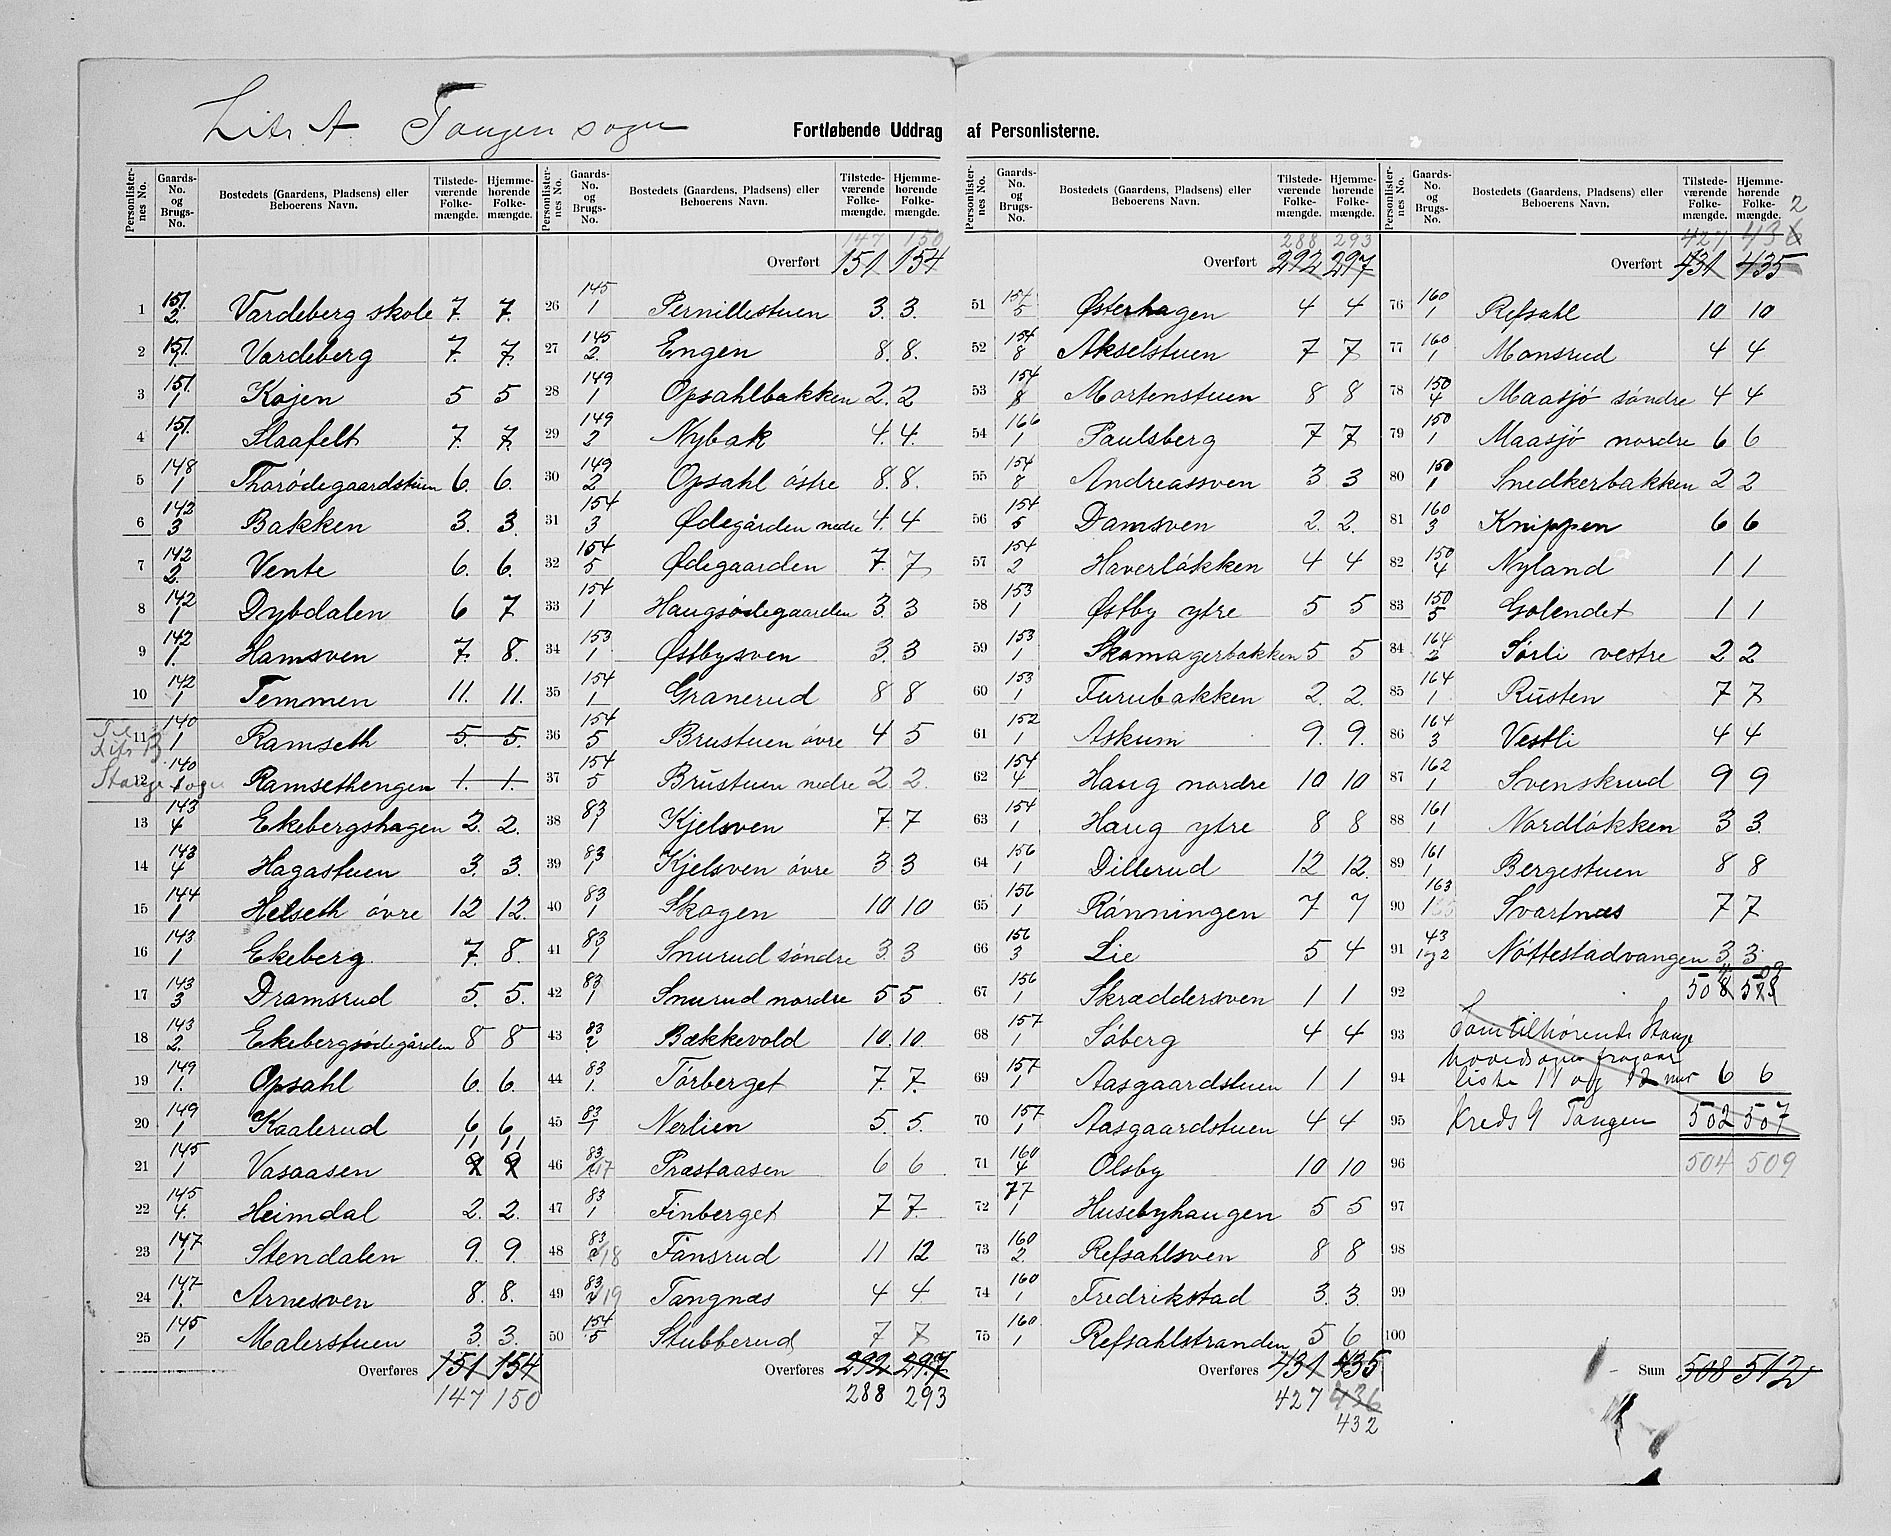 Litr A Tangen sogn
Fortløbende Uddrag af Personlisterne.
Personlister-nes No. | Gaards-No. og Brugs-No. | Bostedets (Gaardens, Pladsens) eller Beboerens Navn. | Tilstede-værende Folke-mængde. | Hjemme-hørende Folke-mængde.
1 151/2 Vardeberg skole 7. 7.
2 151/1 Vardeberg 7. 7.
3 151/1 Kojen 5 5
4 151/1 Slaafelt 7. 7.
5 148/1 Thorødegaardstuen 6. 6.
6 142/3 Bakken 3. 3.
7 142/2 Vente 6. 6.
8 142/1 Dybdalen 6 7
9 142/1 Hamsven 7. 8.
10 142/1 Temmen 11. 11.
11 140/1 Ramseth 5. 5.
Til Litr B
12 140/1 Ramsethengen 1. 1.
Stange sogn
13 143/4 Ekebergshagen 2. 2.
14 143/4 Hagastuen 3. 3.
15 144/1 Helseth øvre 12 12.
16 143/1 Ekeberg 7. 8.
17 143/3 Dramsrud 5. 5.
18 143/2 Ekebergsødegården 8 8
19 149/1 Opsahl 6. 6.
20 149/1 Kaalerud 6 6
21 145/1 Vasaasen 11 11
22 145/4 Heimdal 2. 2.
23 147/1 Stendalen 9. 9.
24 147/1 Arnesven 8. 8.
25 145/1 Malerstuen 3. 3.
Overføres 151 154
147 150
Personlister-nes No. | Gaards-No. og Brugs-No. | Bostedets (Gaardens, Pladsens) eller Beboerens Navn. | Tilstede-værende Folke-mængde. | Hjemme-hørende Folke-mængde.
147 150
Overført 151 154
26 145/1 Pernillestuen 3. 3.
27 145/2 Engen 8. 8.
28 149/1 Opsahlbakken 2. 2
29 149/2 Nybak 4. 4.
30 149/2 Opsahl østre 8. 8.
31 154/3 Ødegården nedre 4. 4
32 154/5 Ødegaarden 7. 7
33 154/1 Haugsødegaarden 3. 3
34 153/1 Østbysven 3. 3
35 154/1 Granerud 8 8
36 154/5 Brustuen øvre 4 5
37 154/5 Brustuen nedre 2 2.
38 83/1 Kjelsven 7. 7
39 83/1 Kjelsven øvre 3 3
40 83/1 Skogen 10 10
41 83/1 Snurud søndre 3 3
42 83/1 Snurud nordre 5 5
43 83/2 Bækkevold 10. 10.
44 83/1 Tørberget 7. 7.
45 83/1 Nerlien 5. 5.
46 83/17 Præstaasen 6 6
47 83/1 Finberget 7 7.
48 83/18 Fånsrud 11 12
49 83/19 Tangnæs 4 4.
50 154/5 Stubberud 7 7
Overføres 292 297
288 293
Personlister-nes No. | Gaards-No. og Brugs-No. | Bostedets (Gaardens, Pladsens) eller Beboerens Navn. | Tilstede-værende Folke-mængde. | Hjemme-hørende Folke-mængde.
288 293
Overført 292 297
51 154/5 Østerhagen 4 4
52 154/8 Akselstuen 7 7
53 154/8 Mortenstuen 8 8
54 166/1 Paulsberg 7 7
55 154/8 Andreassven 3 3
56 154/5 Damsven 2. 2.
57 154/2 Haverløkken 4 4
58 153/1 Østby ytre 5 5
59 153/1 Skomagerbakken 5 5
60 153/1 Furubakken 2. 2.
61 152/1 Askum 9. 9.
62 154/4 Haug nordre 10 10
63 154/1 Haug ytre 8 8
64 156/1 Dillerud 12 12.
65 156/1 Rønningen 7 7
66 156/3 Lie 5 4
67 156/1 Skræddersven 1 1
68 157/1 Søberg 4 4
69 157/1 Aasgaardstuen 1 1
70 157/1 Aasgaardstuen 4 4
71 160/4 Olsby 10 10
72 77/1 Husebyhaugen 5 5
73 160/2 Refsahlsven 8 8
74 160/1 Fredrikstad 3. 3.
75 160/1 Refsahlstranden 5 6
Overføres 431 435
427 436
432
Personlister-nes No. | Gaards-No. og Brugs-No. | Bostedets (Gaardens, Pladsens) eller Beboerens Navn. | Tilstede-værende Folke-mængde. | Hjemme-hørende Folke-mængde.
2
427 436
Overført 431 435
76 160/1 Refsahl 10 10
77 160/1 Monsrud 4 4
78 150/4 Maasjø søndre 4 4
79 150/1 Maasjø nordre 6 6
80 150/1 Snedkerbakken 2 2
81 160/3 Knippen 6 6
82 150/4 Nyland 1 1
83 150/5 Golendet 1 1
84 164/2 Sørli vestre 2 2
85 164/1 Rusten 7 7
86 164/3 Vestli 4 4
87 162/1 Svenskrud 9 9
88 161/1 Nordløkken 3 3.
89 161/1 Bergestuen 8 8
90 163/1 Svartnæs 7 7
91 43/1 og 2 Nøttestadvangen 3 3
92 508
93 Som tilhørende Stange
hovedsogn fragaar
94 liste 11 og 12 med 6 6
95 Kreds 9 Tangen 502 507
96 504 509
97
98
99
100
Sum 508 512